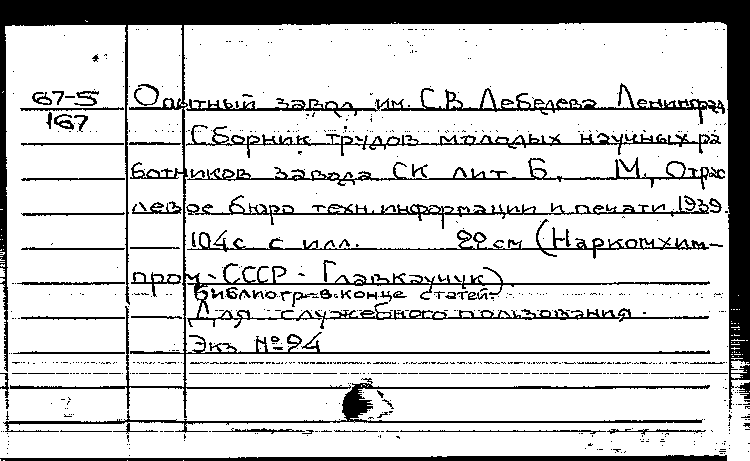 67-5
167
Опытный завод им. С.В. Лебедева Ленинград
Сборник трудов молодых научных ра
ботников завода СК лит. Б. М., Отрас
левое бюро техн. информации и печати, 1939.
104 с. с илл. 22 см (Наркомхим-
пром - СССР - Главкаучук).
Библиогр. в конце статей.
Для служебного пользования.
Экз. № 24